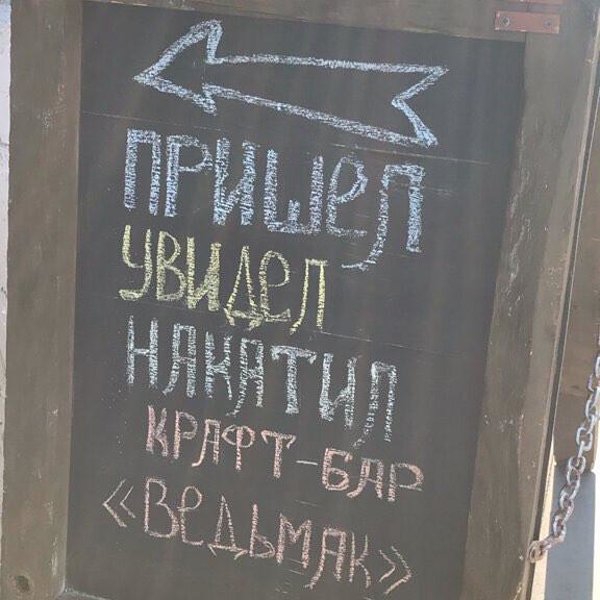 ПРИШЕЛ
УВИДЕЛ
НАКАТИЛ
КРАФТ-БАР
«ВЕДЬМАК»